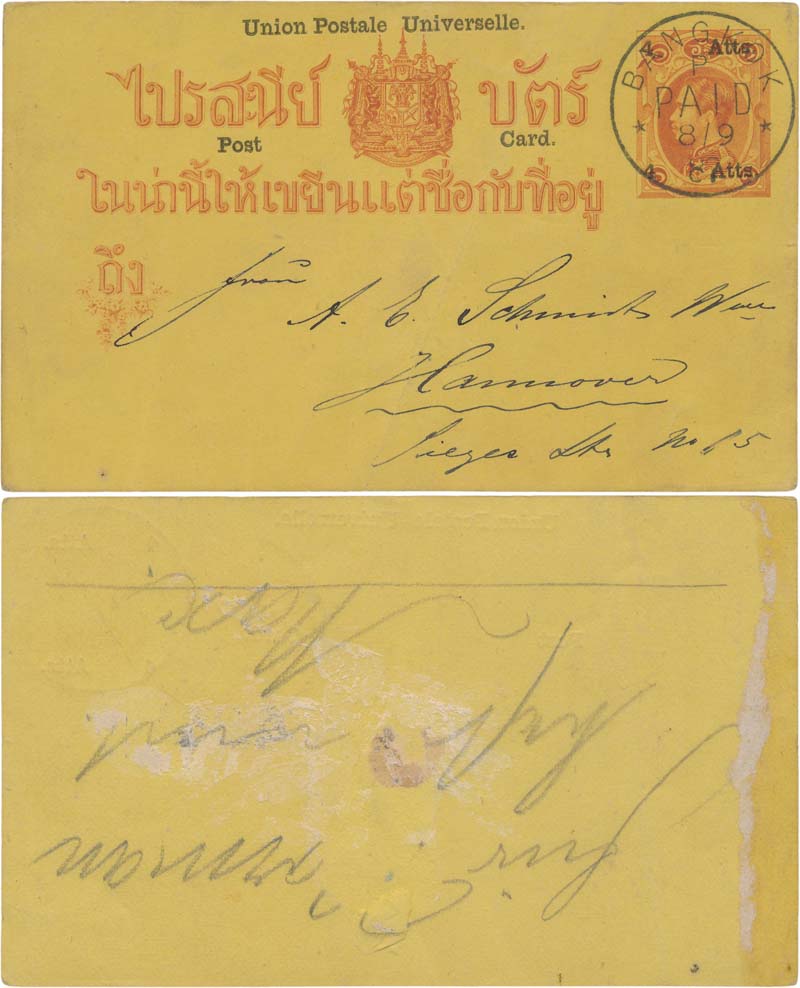 Union Postale Universelle.
ไปรสะนีย์ บัตร์
Post Card.
ในน่านี้ให้เขยีนแต่ชื่อกับที่อยู่
ถึง
4 Atts
4 Atts
BANGKOK
P
PAID
8/9
Frau
A. E. Schmidt Wwe
Hannover
No 15
für
Maxi